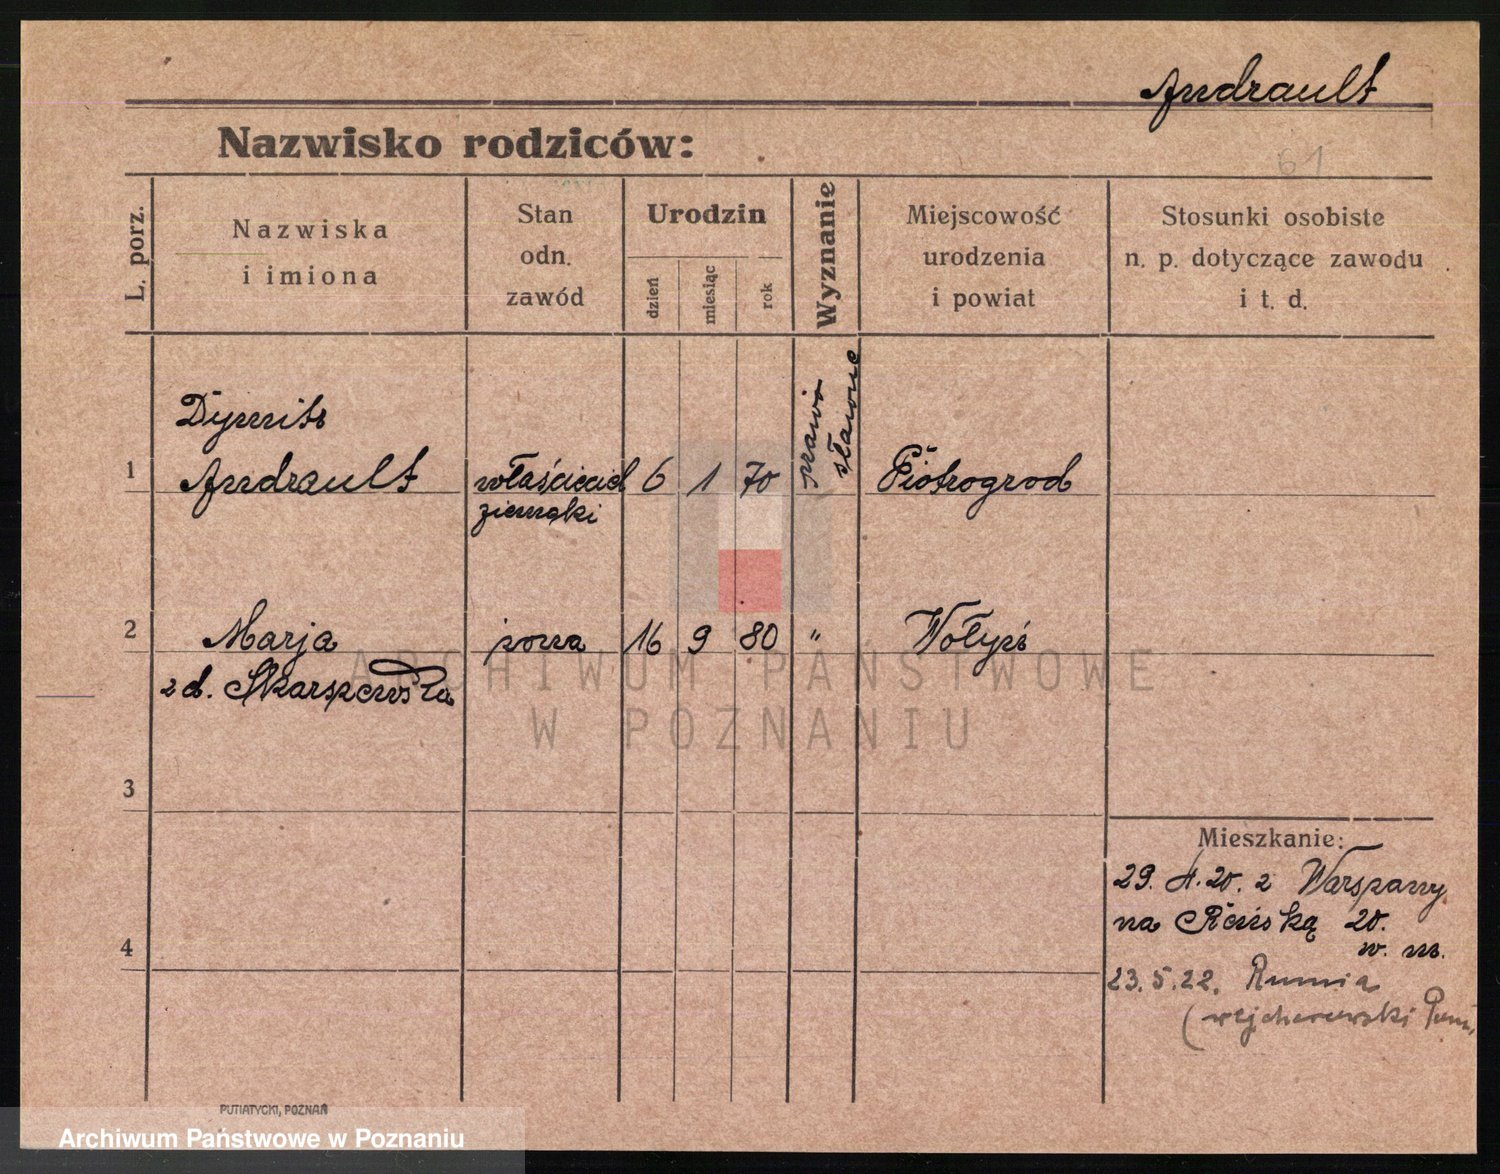 Andrault
Nazwisko rodziców:
61
L. porz.
Nazwiska
i imiona
Stan
odn.
zawód
Urodzin
dzień
miesiąc
rok
Wyznanie
Miejscowość
urodzenia
i powiat
Stosunki osobiste
n. p. dotyczące zawodu
i t. d.
Dymitr
1 Andrault właściciel 6 1 70 prawo Piotrogrod
ziemski
sławne
2 Marja żona 16 9 80 " Wołyń
z d. Skarszewska
3
Mieszkanie:
29. 4. 20. z Warszawy
na 20.
4
w. m.
23.5.22. Rumia
(wejherowski Pom.
PUTIATYCKI, POZNAŃ
ARCHIWUM PAŃSTWOWE
W POZNANIU
Archiwum Państwowe w Poznaniu